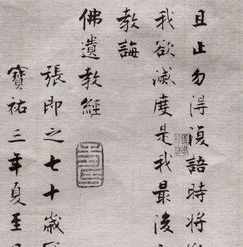 且止勿得復語時將
我欲滅度是我最後
教誨
佛遺教經
張即之七十歲
寶祐三年夏至